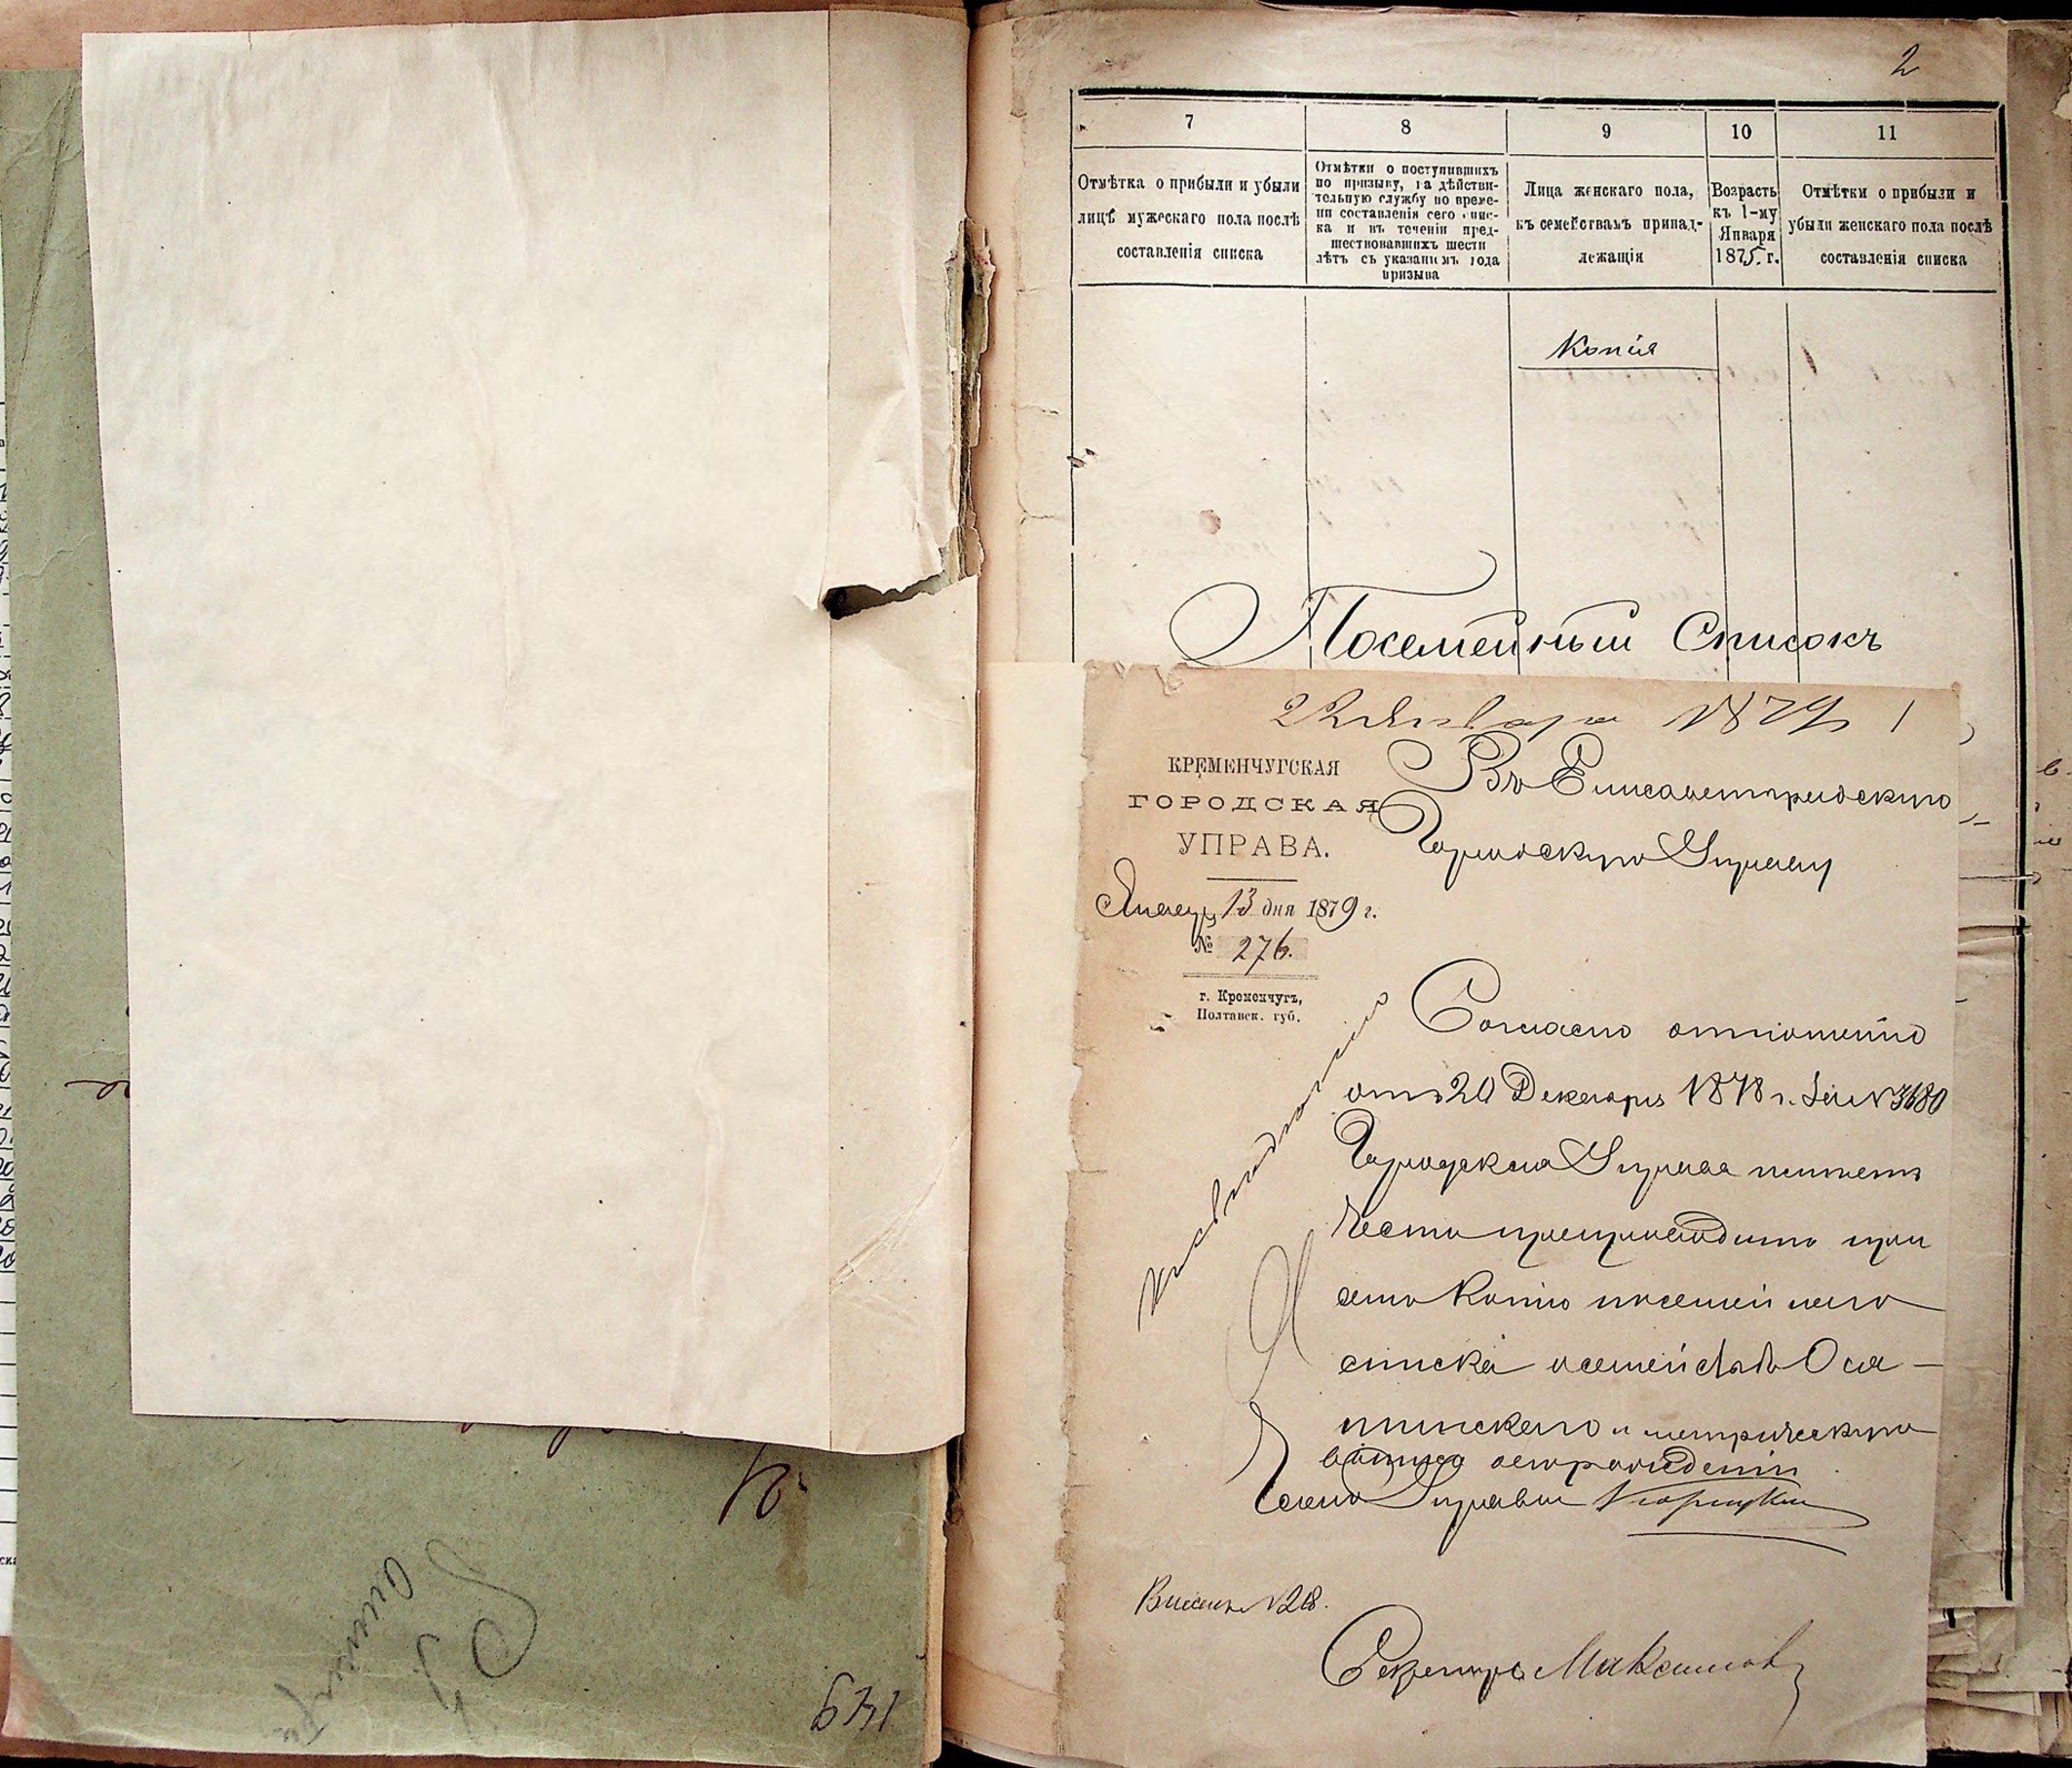 2
7
8
9
10
11
Отмѣтка о прибыли и убыли
лицъ мужескаго пола послѣ
составленія списка
Отмѣтки о поступившихъ
по призыву, на дѣйстви-
тельную службу по време-
ни составленія сего спис-
ка и въ теченіи пред-
шествовавшихъ шести
лѣтъ съ указаніемъ года
призыва
Лица женскаго пола,
къ семействамъ принад-
лежащія
Возрастъ
къ 1-му
Января
1875. г.
Отмѣтки о прибыли и
убыли женскаго пола послѣ
составленія списка
Копія
Посемейный Списокъ
22 Января 1879 1
КРЕМЕНЧУГСКАЯ
ГОРОДСКАЯ
УПРАВА.
Января 13 дня 1879 г.
№ 276.
г. Кременчугъ,
Полтавск. губ.
Въ Елисаветградскую
Городскую Управу
Согласно отношенію
отъ 20 Декабря 1878 г. за № 3680
Городская Управа имѣетъ
честь препроводить при
семъ копію посемейнаго
списка о семействѣ Оси-
пинскаго и метрическую
Членъ Управы
№ 218.
Секретарь Максимов
149